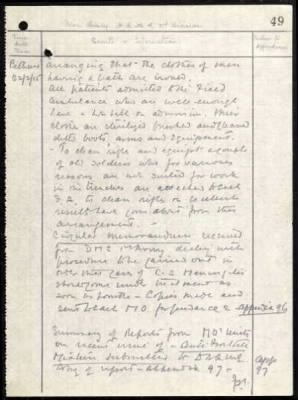 War Diary
49
Place
Date
Hours
Events & information
Reference to
Appendices
Bethune
arranging that the clothes of men
having a bath are ironed.
All patients admitted to the Field
Ambulance who are well enough
have a hot bath on admission. Their
clothes are
boots, arms and equipment.
To clean rifles and equipt a couple
of old soldiers who for various
reasons are not suited for work
in the trenches are attached to each
F.A. to clean rifles &c. Excellent
results have come about from this
arrangement. -
Circular Memorandum received
from DMS 1st Army dealing with
procedure to be carried out in
Case of C.S. Meningitis
should come under treatment as
soon as possible - Copies made and
sent to each M.O. for guidance
Appendix 96
Summary of Reports from MOs Units
on recent issue of - Anti Frostbite
Mixture submitted to
Copy of report - Appendix 97 -
App.
97